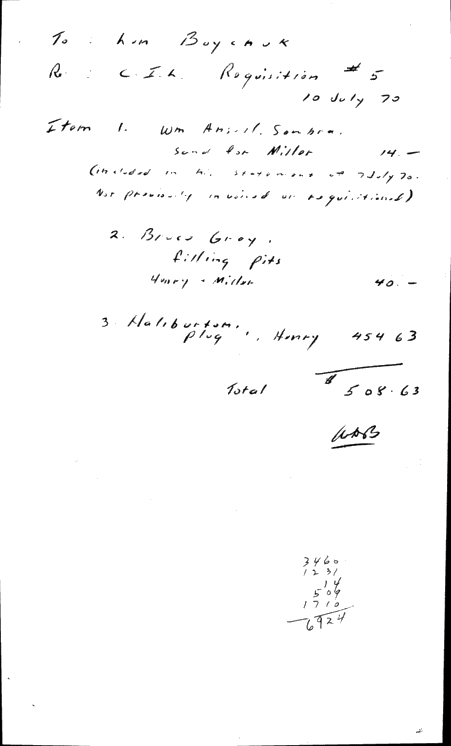 To : Len Boychuk
Re : C.I.L. Requisition # 5
10 July 70
Item 1. Wm Sombra.
Sand for Miller 14. —
(included in his statement of 7 July 70.
Not previously invoiced or requisitioned)
2. Bruce Gray.
filling pits
Henry + Miller 40. —
3. Haliburton.
plug ", Henry 454 63
Total $ 508.63
WAB
3460
1231
14
509
1710
6924